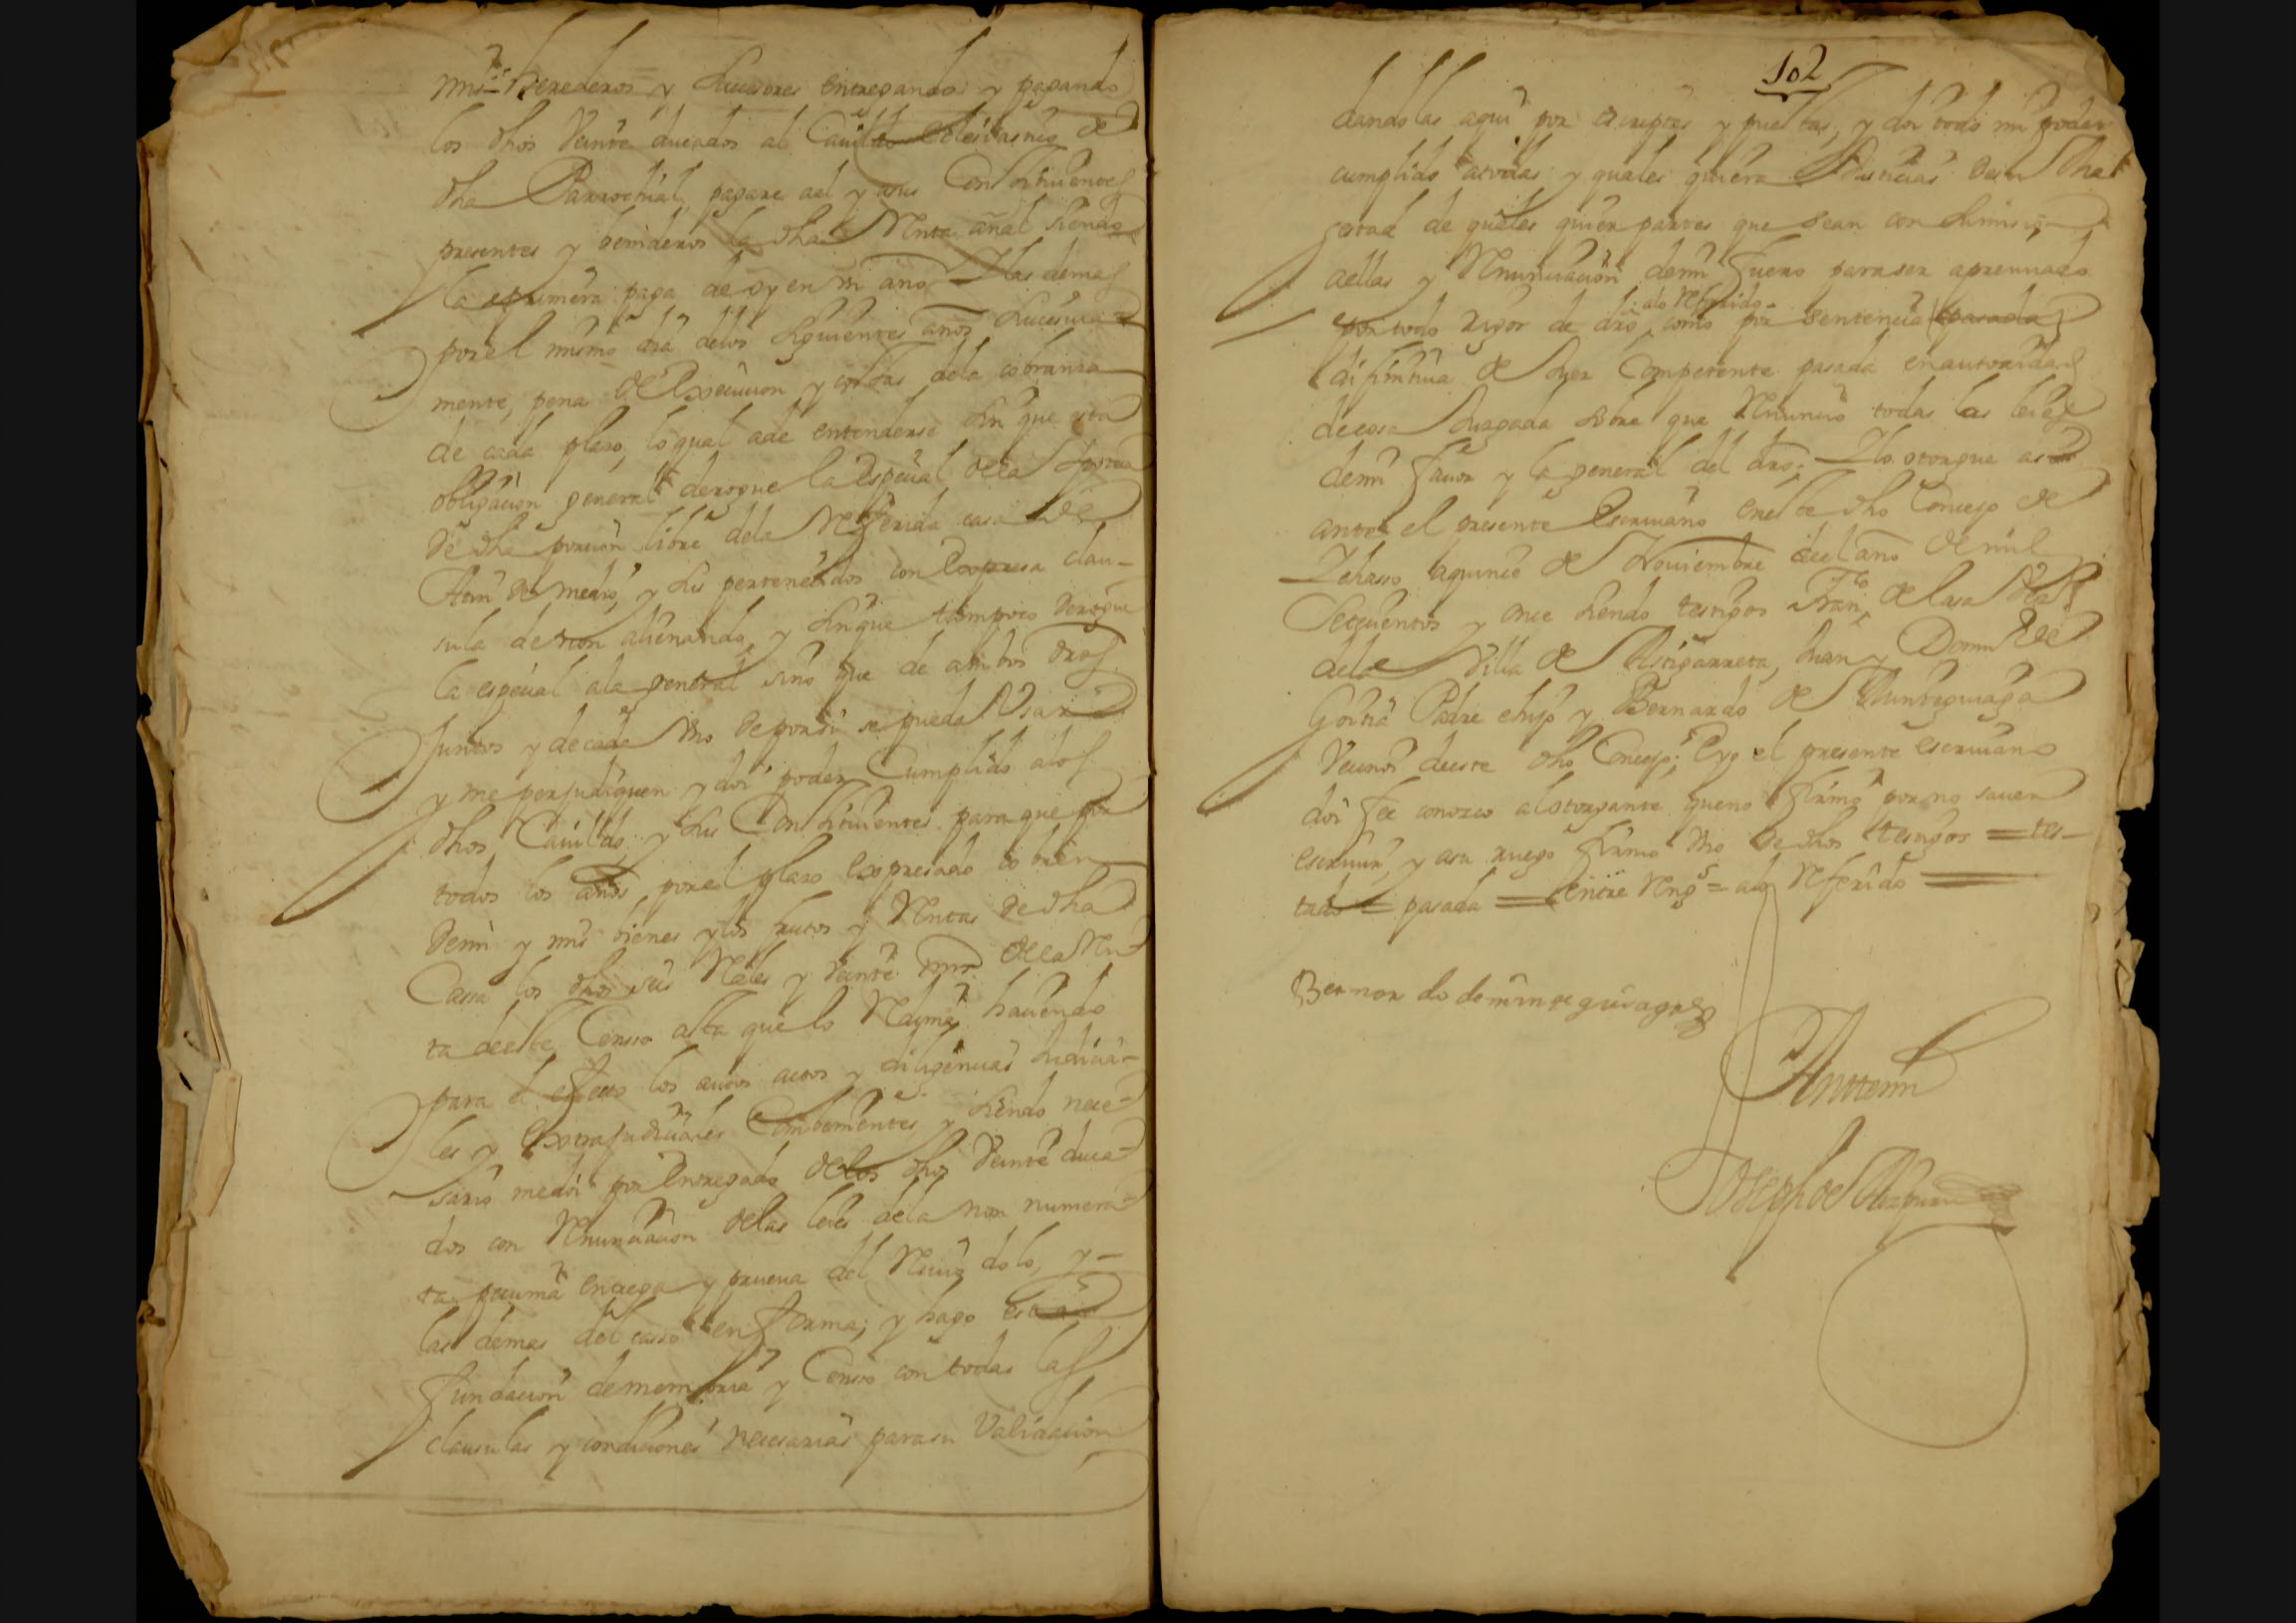 mis herederos y subcesores entregando y pagando
los dhos veinte ducados al Cavildo eclesiastico de
dha Parrochial, pagare ael y asus Constituentes
presentes y benideros la dha Renta añal siendo
la primera paga de oy en un año Y las demas
por el mismo dia delos siguientes años sucesiva=
mente, pena de Execucion y costas dela cobranza
de cada plaso, lo qual ade entenderse sin que esta
obligacion general derogue la especial dela
de dha porcion libre dela Referida casa de
de medio, y sus pertenecidos con Expresa clau-
sula de non alienando, y sin que tampoco derogue
la especial ala general sino que de ambos dros
Juntos y de cada Uno de por si se pueda Usar
y me perjudiquen y doi poder Cumplido alos
dhos Cavildo, y sus Constituentes para que por
todos los años, por el plaso Expresado cobren
de mi y mis bienes y los frutos y Rentas de dha
Cassa los dhos seis Reales y veinte mrs dela Ren-
ta deeste Censo asta que lo Redyma haciendo
para el efecto los autos actos y diligencias Judicia-
les y Extrajudiciales Combenientes y siendo nece-
sario medoi por Entregado delos dhos Veinte duca-
dos con Renunciacion delas leies dela non numera-
ta pecunia entrega y prueva del Recivo dolo, y-
las demas del casso en forma; y hago esta
fundacion de memoria y Censo con todas las
clausulas y condiciones necesarias para su Validacion
102
dandolas aqui por escriptas y puestas, y doi todo mi poder
cumplido atodas y quales quiera Justicias desu Mha
gestad de quales quier partes que sean con sumision
aellas y Renunciacion demi fuero paraser apremiado
alo Referido-
por todo rigor de dro, como por sentencia pasada
difinitiva de Juez Competente pasada en autoridad
decosa Jusgada sobre que Renuncio todas las leies
demi favor y la general del dro; Y lo otorgue asi
ante el presente Escrivano eneste dho Concejo de
aquince de Noviembre deel año de mil
Setecientos y once siendo testigos Fran.co de Lasa
dela Villa de Astigarreta, Juan y Domingo de
Goitia Padre ehijo y Bernardo de Munteguiaga
Vecinos deeste dho Concejo; Eyo el presente escrivano
doi fee conozco alotorgante queno firmo por no saver
escrivir, y asu ruego firmo Uno de dhos testigos = tes-
tado = pasada = entre Rengs = alo Referido =
Bernar do de munteguiaga
Antemi
Joseph de